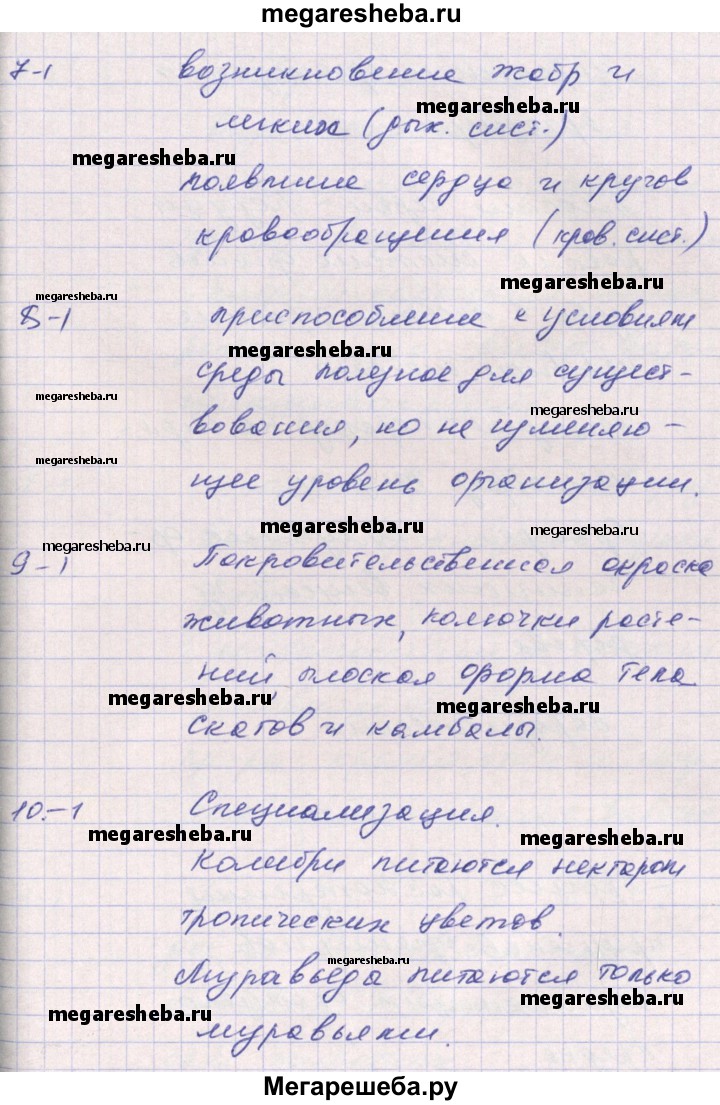 megaresheba.ru
7-1 возникновение жабр и
megaresheba.ru
легких (дых. сист.)
megaresheba.ru
появление сердца и кругов
кровообращения (кров. сист.)
megaresheba.ru
megaresheba.ru
8-1 приспособление к условиям
megaresheba.ru
среды полезное для сущест-
megaresheba.ru
megaresheba.ru
вования, но не изменяю-
megaresheba.ru
щее уровень организации.
megaresheba.ru
megaresheba.ru
megaresheba.ru
9-1 Покровительственная окраска
животных, колючки расте-
ний, плоская форма тела
megaresheba.ru
megaresheba.ru
скатов и камбалы.
10.-1 Специализация.
megaresheba.ru
megaresheba.ru
Колибри питаются нектаром
тропических цветов.
megaresheba.ru
Муравьеда питаются только
megaresheba.ru
megaresheba.ru
муравьями.
Мегарешеба.ру